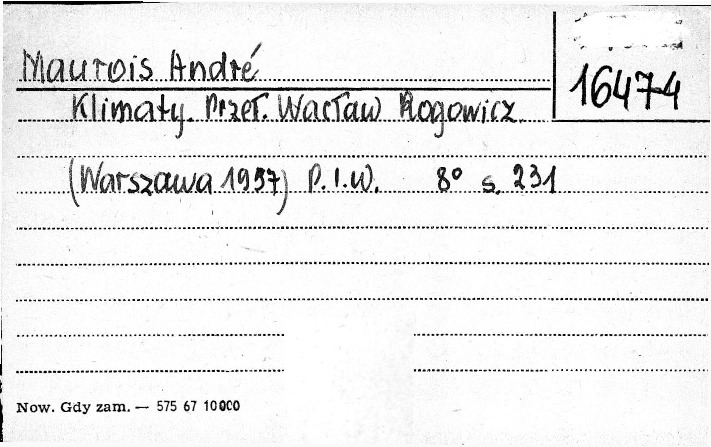 Maurois André
16474
Klimaty. Przeł. Wacław Rogowicz.
(Warszawa 1957) P.I.W. 8° s. 231
Now. Gdy zam. — 575 67 10000